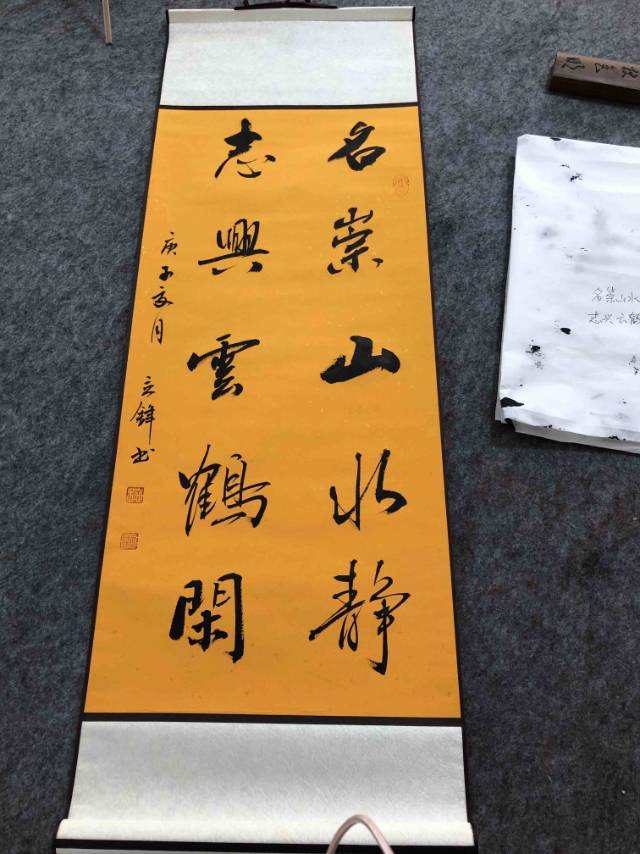 名崇山水静
志興雲鶴閑
庚子夏月
立鋒书
名崇山水
志兴云鹤